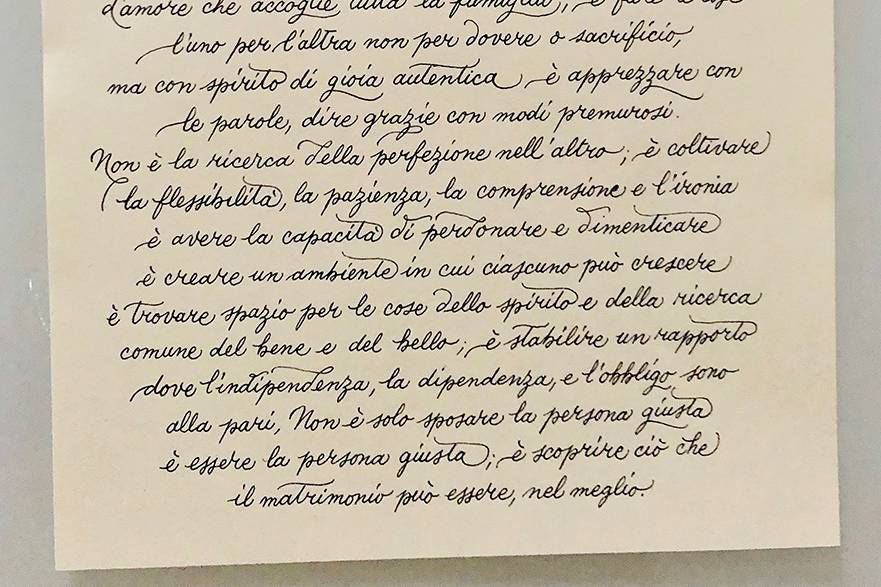 d'amore che accoglie tutta la famiglia; è fare le cose
l'uno per l'altra non per dovere o sacrificio,
ma con spirito di gioia autentica, è apprezzare con
le parole, dire grazie con modi premurosi.
Non è la ricerca della perfezione nell'altro; è coltivare
la flessibilità, la pazienza, la comprensione e l'ironia
è avere la capacità di perdonare e dimenticare
è creare un ambiente in cui ciascuno può crescere
è trovare spazio per le cose dello spirito e della ricerca
comune del bene e del bello; è stabilire un rapporto
dove l'indipendenza, la dipendenza, e l'obbligo sono
alla pari, Non è solo sposare la persona giusta
è essere la persona giusta; è scoprire ciò che
il matrimonio può essere, nel meglio.